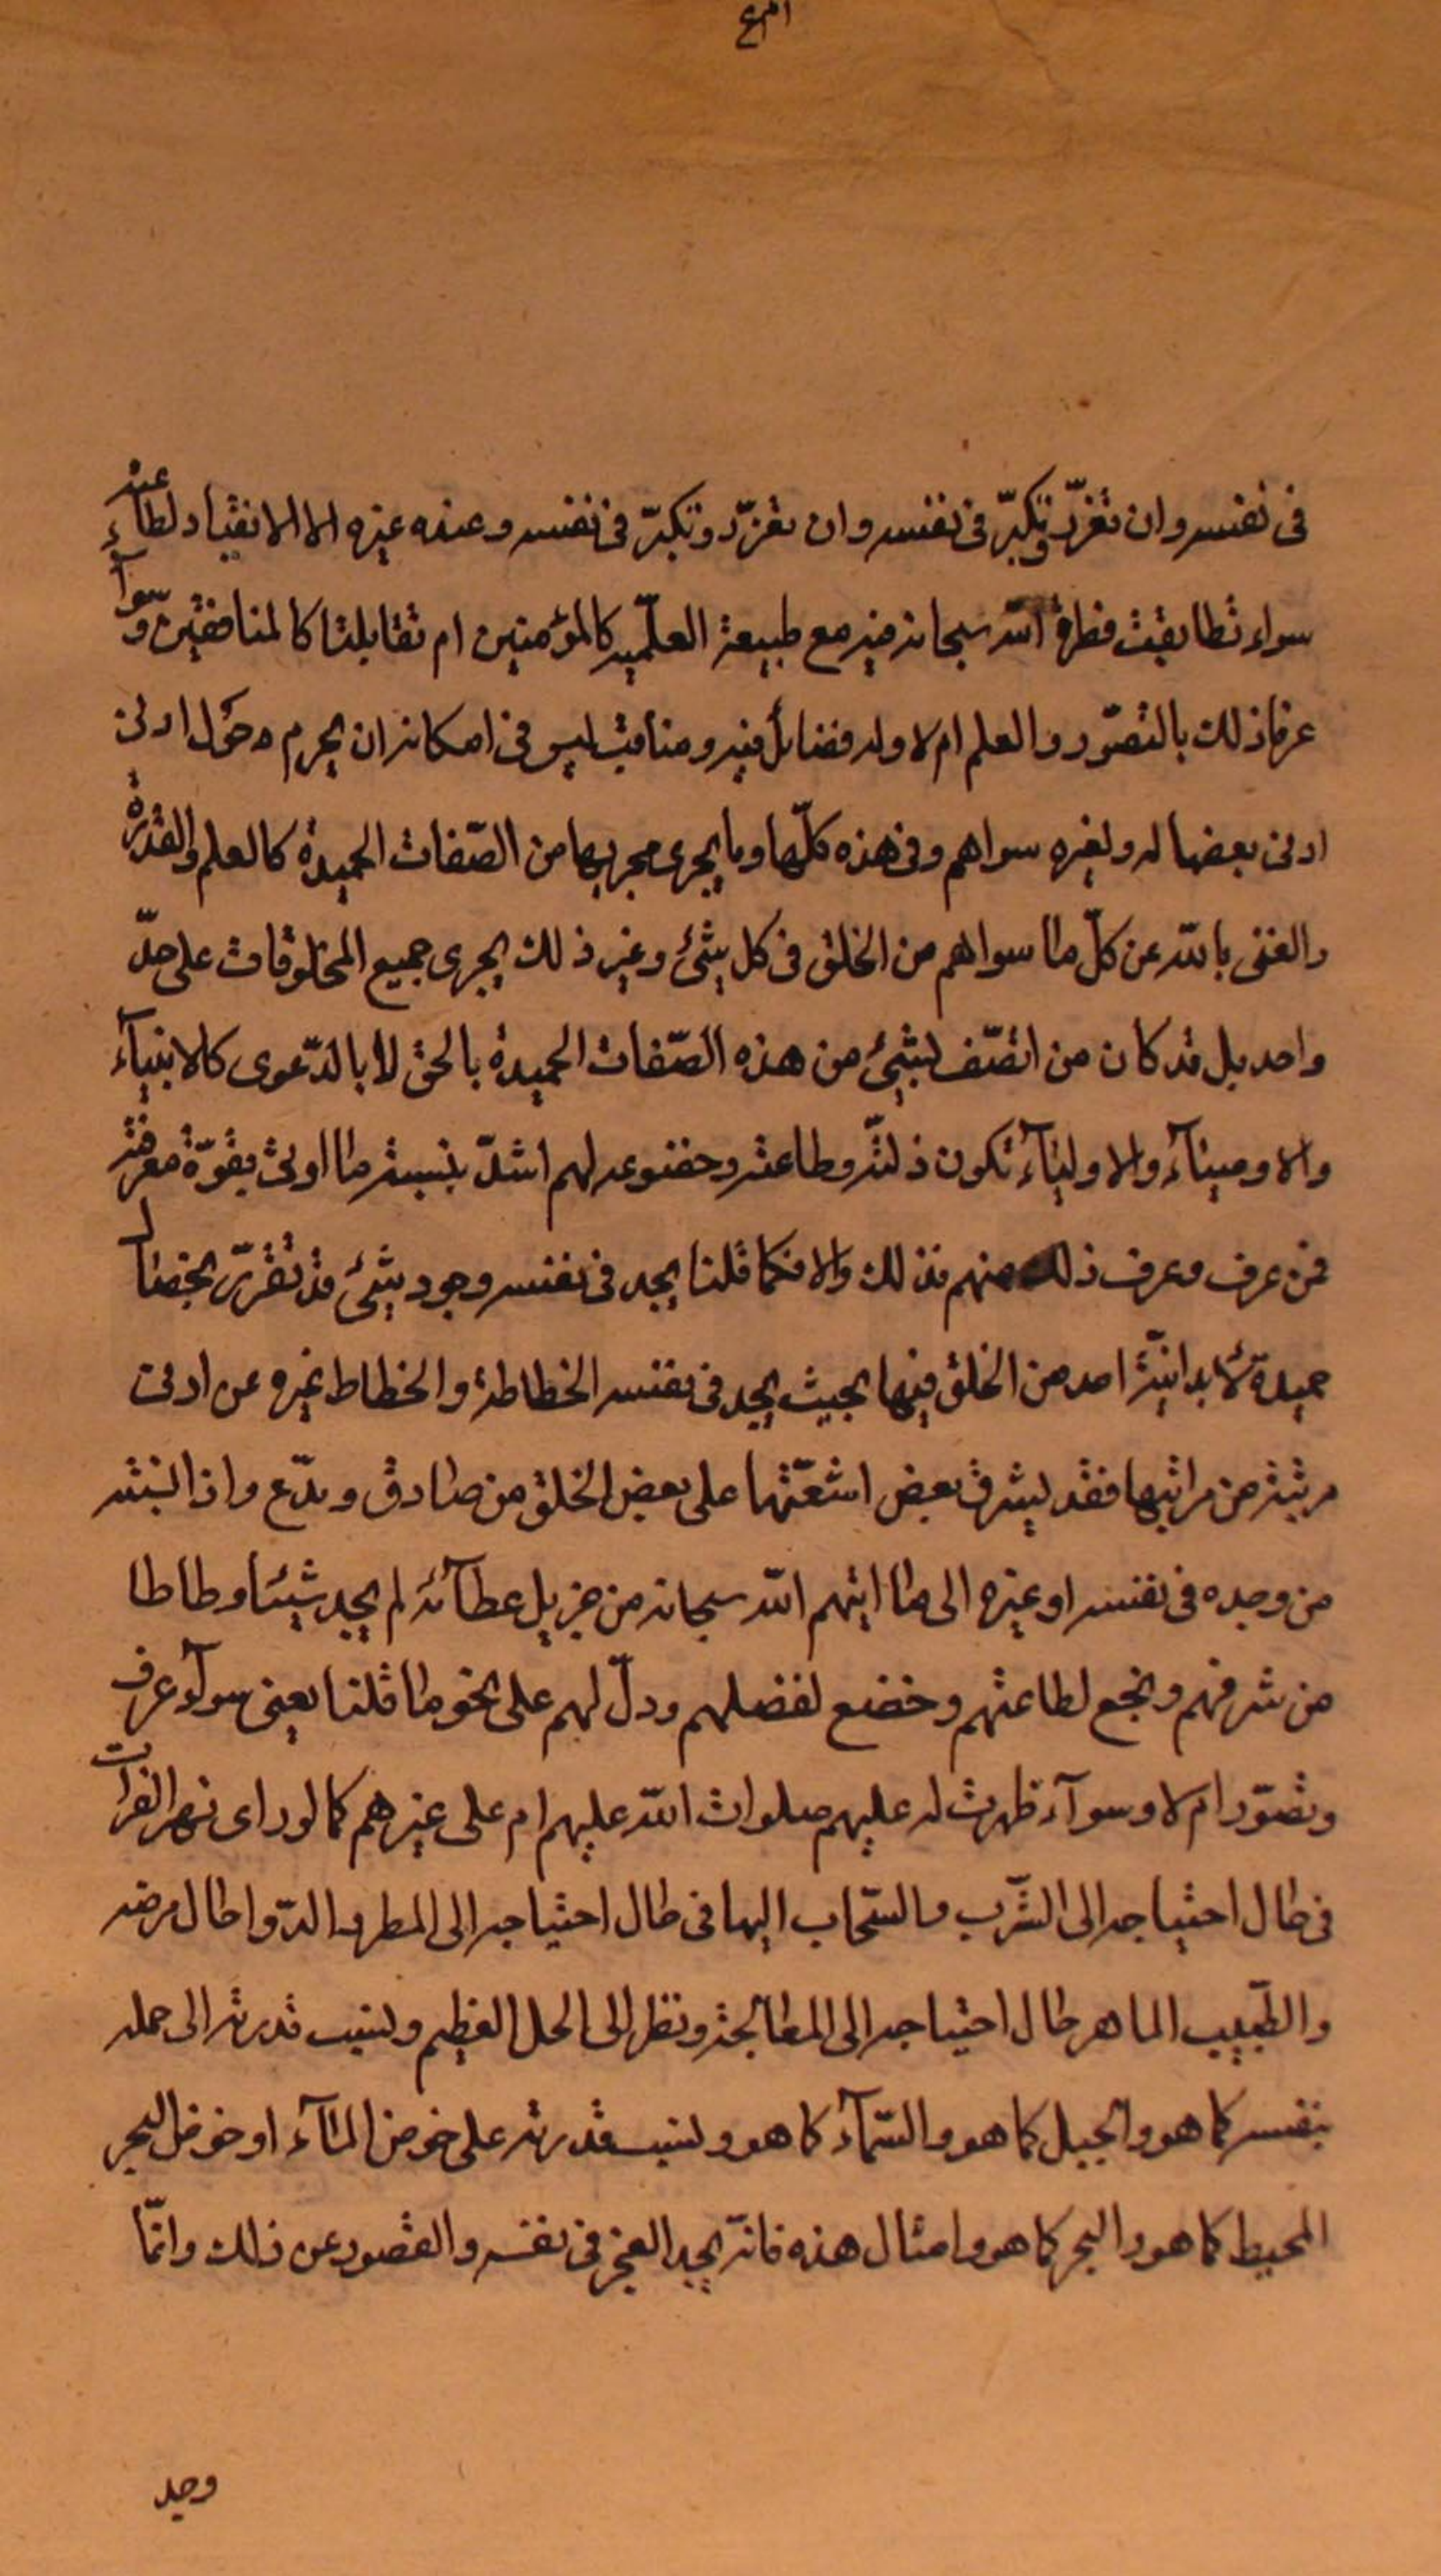 فى نفسه وان تعزّز وتكبّر فى نفسه وان تعزّز وتكبّر فى نفسه وعنده غيره الا الانقياد لطاعته
سواء تطابقت فطرة الله سبحانه فيه مع طبيعة العلّميه كالمؤمنين ام تقابلتا كالمنافقين وسوآء
عرفا ذلك بالتصوّر والعلم ام لا وله فضائل فيه ومناقب ليس فى امكانه ان يحرم حول ادنى
ادنى بعضها له ولغيره سواهم وفى هذه كلّها وما يجرى مجريها من الصّفات الحميدة كالعلم والقدرة
والغنى بالله عن كلّ ما سواهم من الخلق فى كل شئ وغير ذلك يجرى جميع المخلوقات على حدّ
واحد بل قد كان من اتصّف بشئ من هذه الصّفات الحميدة بالحق لا بالدّعوى كالانبيآء
والاوصيآء والاوليآء تكون ذلّته وطاعته وخضوعه لهم اشدّ بنسبة ما اوتى بقوّة معرفته
فمن عرف وعرف ذلك منهم فذلك والا فكما قلنا يجد فى نفسه وجود شئ قد تقرّر بخصال
حميدة لا يدانيه احد من الخلق فيها بحيث يجد فى نفسه انحطاطه وانحطاط غيره عن ادنى
مرتبة من مراتبها فقد يشرق بعض اشعّتها على بعض الخلق من صادق ومدّع واذا نسبته
من وجده فى نفسه او غيره الى ما اتيهم الله سبحانه من جزيل عطآئه لم يجد شيئا وطاطا
من شرفهم وبخع لطاعتهم وخضع لفضلهم وذلّ لهم على نحو ما قلنا يعنى سوآء عرف
وتصوّر ام لا وسوآء ظهرت له عليهم صلوات الله عليهم ام على غيرهم كما لو راى نهر الفرات
فى حال احتياجه الى الشّرب والسّحاب اليها فى حال احتياجه الى المطر والدّوا حال مرضه
والطّبيب الماهر حال احتياجه الى المعالجة ونظر الى الحمل العظيم ونسب قدرته الى حمله
بنفسه كما هو والجبل كما هو والسّمآء كما هو ونسب قدرته على خوض المآء او خوض البحر
المحيط كما هو والبحر كما هو وامثال هذه فانّه يجد العجز فى نفسه والقصور عن ذلك وانّما
وجد